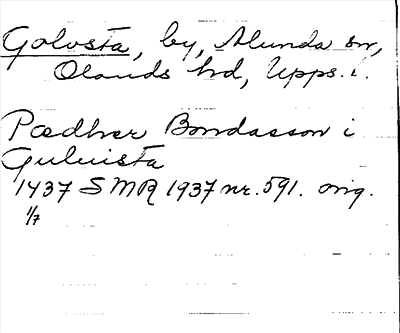 Golvsta, by, Alunda sn,
Olands hd, Upps. l.
Pædher Bondasson i
Guluista
1437 SMR 1937 nr. 591. orig.
1/7